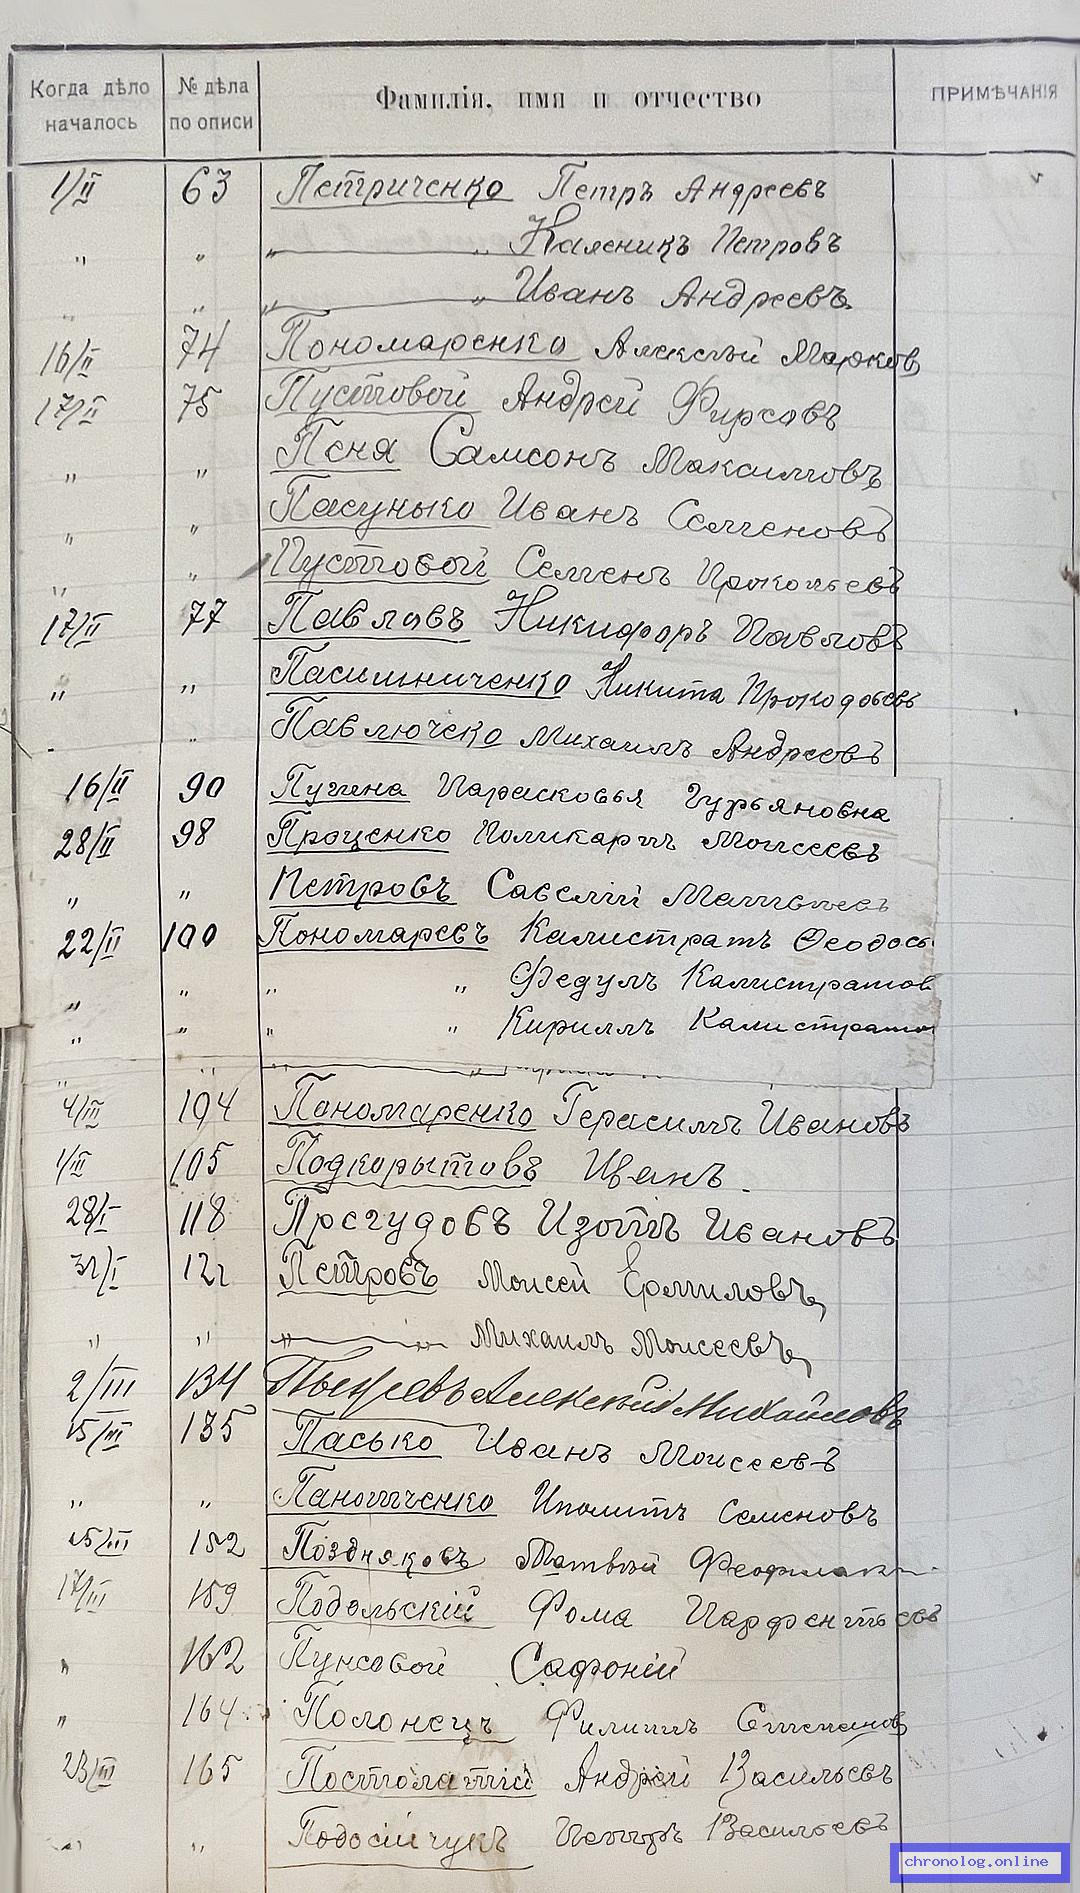 Когда дѣло началось № дѣла по описи Фамилія, имя и отчество ПРИМѢЧАНІЯ
1/II 63 Петриченко Петръ Андреевъ
" " " " Каленикъ Петровъ
" " " " Иванъ Андреевъ
16/II 74 Пономаренко Алексѣй Марков
17/II 75 Пустовой Андрей Фирсовъ
" " Пеня Самсонъ Максимовъ
" " Пасунько Иванъ Семеновъ
" " Пустовой Семенъ Прокопьевъ
17/II 77 Павловъ Никифоръ Павловъ
" " Пасильниченко Никита
" " Павлюченко Михаилъ Андреевъ
16/II 90 Парасковья Гурьяновна
28/II 98 Проценко Поликарпъ Моисеевъ
" " Петровъ Савелій
22/II 100 Пономаревъ Калистратъ Феодось
" " " " Федулъ Калистратов
" " " " Кириллъ Калистрато
" "
4/III 104 Пономаренко Герасимъ Ивановъ
1/III 105 Подкорытовъ Иванъ
28/I 118 Изотъ Ивановъ
31/I 121 Петровъ Моисей Ермиловъ
" " " " Михаилъ Моисеевъ
2/III 134 Алексѣй Михайловъ
15/III 135 Пасько Иванъ Моисеевъ
" " Ипомитъ Семеновъ
15/III 152 Поздняковъ Матвѣй
17/III 159 Подольскій Фома Парфентьевъ
" 162 Пунсовой Сафоній
" 164 Полонецъ Филиппъ Степанов
23/III 165 Постолатій Андрей Васильевъ
" " Подосійчукъ Петръ Васильевъ
chronolog.online